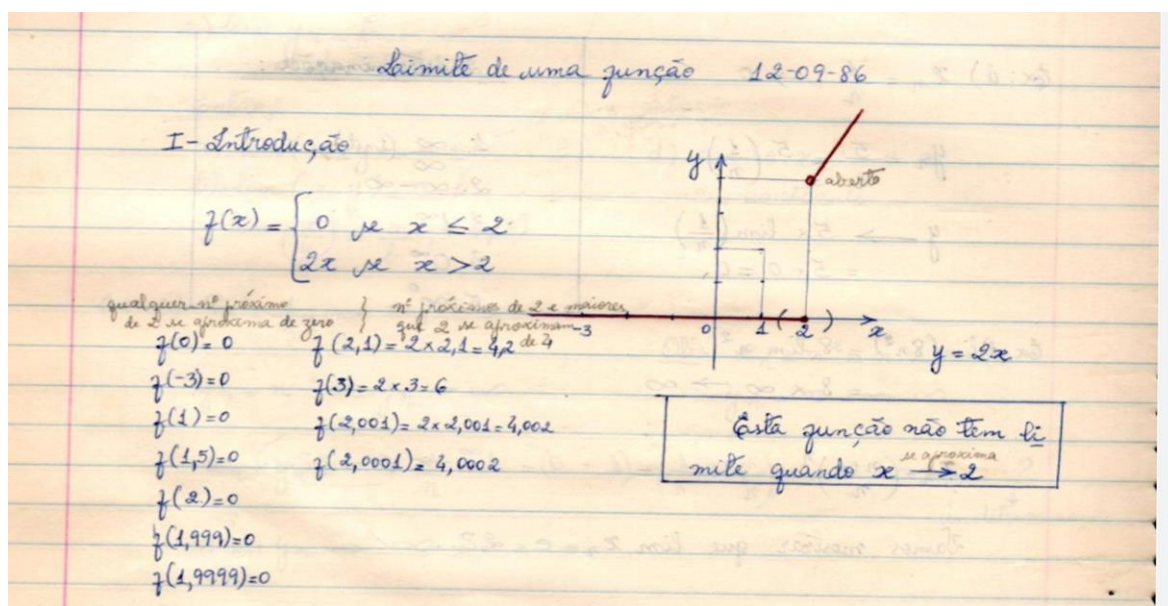 Limite de uma função 12-09-86
I- Introdução
f(x) = { 0 se x ≤ 2
2x se x > 2
qualquer nº próximo
de 2 se aproxima de zero
} nº próximos de 2 e maiores
que 2 se aproximam
de 4
f(0) = 0
f(-3)=0
f(1)=0
f(1,5)=0
f(2)=0
f(1,999)=0
f(1,9999)=0
f(2,1) = 2 x 2,1 = 4,2
f(3) = 2 x 3 = 6
f(2,001) = 2 x 2,001 = 4,002
f(2,0001) = 4,0002
y
aberto
-3 0 1 ( 2 ) x
y = 2x
Esta função não tem li
mite quando x → 2
se aproxima